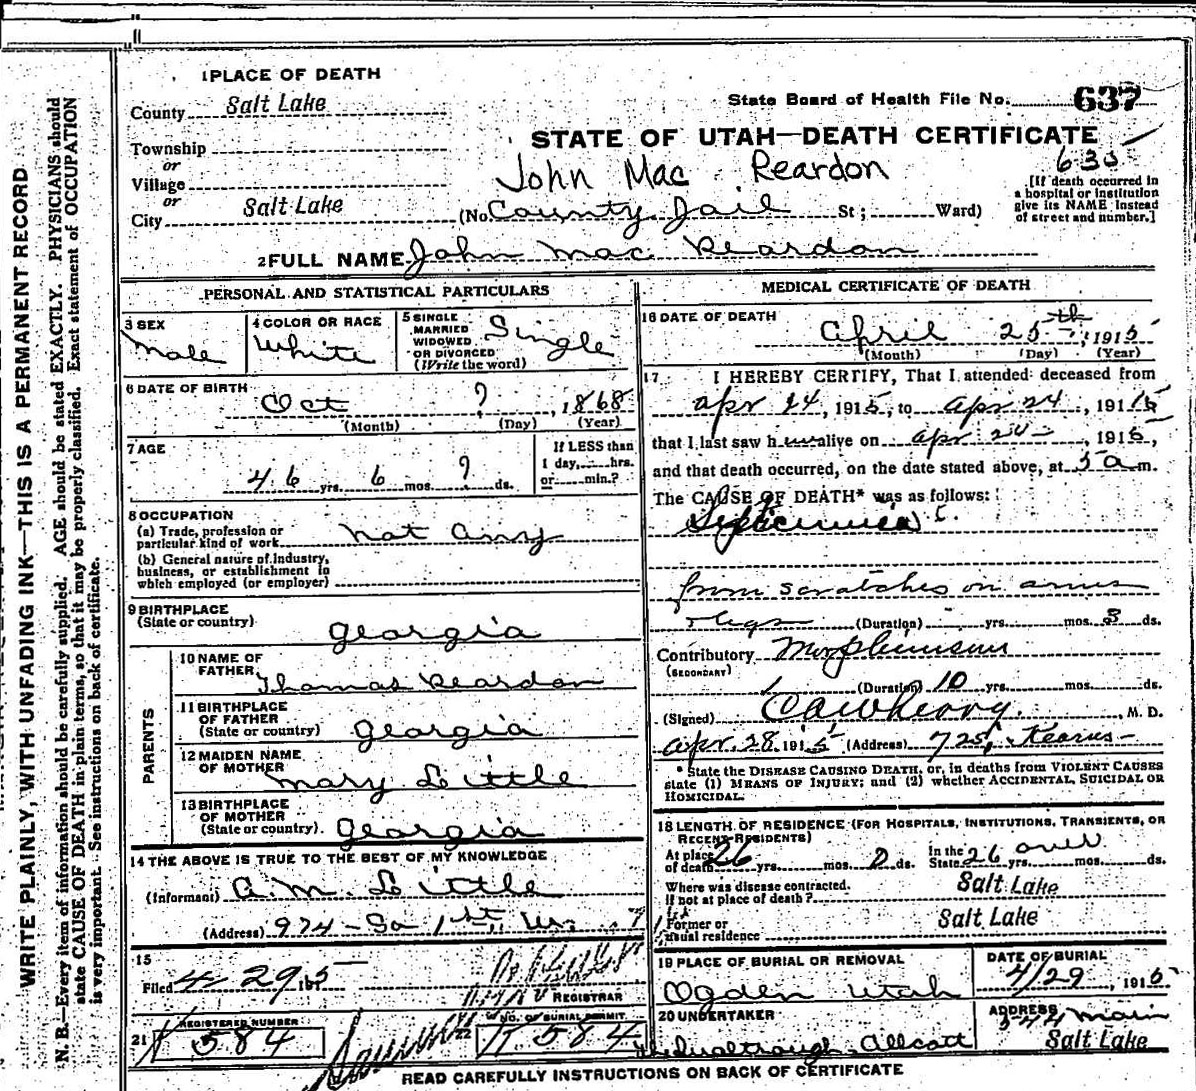 1 PLACE OF DEATH
County Salt Lake
State Board of Health File No. 637
STATE OF UTAH—DEATH CERTIFICATE
Township
or
Village
or
City Salt Lake
John Mac Reardon
635
(No. County Jail St; Ward)
[If death occurred in
a hospital or institution
give its NAME instead
of street and number.]
2 FULL NAME John Mac Reardon
PERSONAL AND STATISTICAL PARTICULARS
3 SEX
Male
4 COLOR OR RACE
White
5 SINGLE
MARRIED
WIDOWED
OR DIVORCED
(Write the word)
Single
6 DATE OF BIRTH
Oct ? , 1868
(Month) (Day) (Year)
7 AGE
46 yrs. 6 mos. ? ds.
If LESS than
1 day, hrs.
or min.?
8 OCCUPATION
(a) Trade, profession or
particular kind of work not any
(b) General nature of Industry,
business, or establishment in
which employed (or employer)
9 BIRTHPLACE
(State or country)
Georgia
PARENTS
10 NAME OF
FATHER
Thomas Reardon
11 BIRTHPLACE
OF FATHER
(State or country) Georgia
12 MAIDEN NAME
OF MOTHER
Mary Little
13 BIRTHPLACE
OF MOTHER
(State or country). Georgia
14 THE ABOVE IS TRUE TO THE BEST OF MY KNOWLEDGE
(Informant) A. M. Little
(Address) 974 - So 1st W.
15
Filed 4 29 1915
REGISTRAR
21 REGISTERED NUMBER
584
22 NO. OF BURIAL PERMIT.
584
MEDICAL CERTIFICATE OF DEATH
16 DATE OF DEATH
April 25th , 1915
(Month) (Day) (Year)
17 I HEREBY CERTIFY, That I attended deceased from
Apr 24, 1915, to Apr 24, 1915
that I last saw h alive on Apr 24 , 1915,
and that death occurred, on the date stated above, at 5 a m.
The CAUSE OF DEATH* was as follows:
Septicemia
from scratches on arms
& legs (Duration) yrs. mos. 8 ds.
Contributory Morphinism
(SECONDARY)
(Duration) 10 yrs. mos. ds.
(Signed) M. D.
Apr. 28 1915 (Address) 725 Kearns
* State the DISEASE CAUSING DEATH, or, in deaths from VIOLENT CAUSES
state (1) MEANS OF INJURY; and (2) whether ACCIDENTAL, SUICIDAL OR
HOMICIDAL.
18 LENGTH OF RESIDENCE (FOR HOSPITALS, INSTITUTIONS, TRANSIENTS, OR
RECENT RESIDENTS)
At place
of death 26 yrs. mos. 2 ds.
In the
State 26 over yrs. mos. ds.
Where was disease contracted.
If not at place of death? Salt Lake
Former or
usual residence Salt Lake
19 PLACE OF BURIAL OR REMOVAL
Ogden Utah
DATE OF BURIAL
4/29 , 1915
20 UNDERTAKER
ADDRESS
544 Main
Salt Lake
READ CAREFULLY INSTRUCTIONS ON BACK OF CERTIFICATE
WRITE PLAINLY, WITH UNFADING INK—THIS IS A PERMANENT RECORD
N. B.—Every item of information should be carefully supplied. AGE should be stated EXACTLY. PHYSICIANS should
state CAUSE OF DEATH in plain terms, so that it may be properly classified. Exact statement of OCCUPATION
is very important. See instructions on back of certificate.